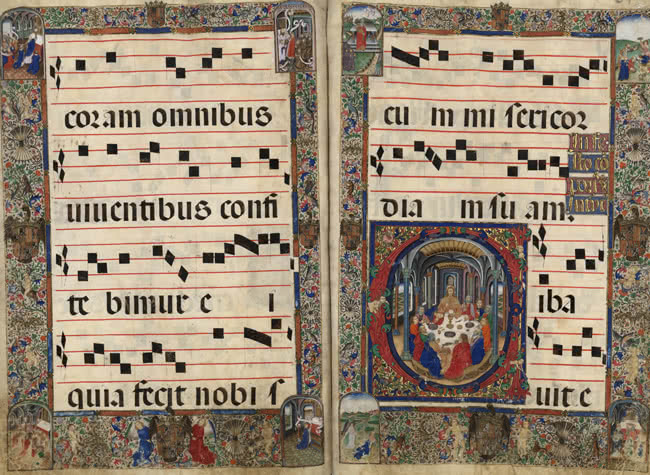 coram omnibus
uiuentibus confi
te bimur e i
quia fecit nobi ſ
cu m mi ſericor
dia m ſu am.
iba
uit e